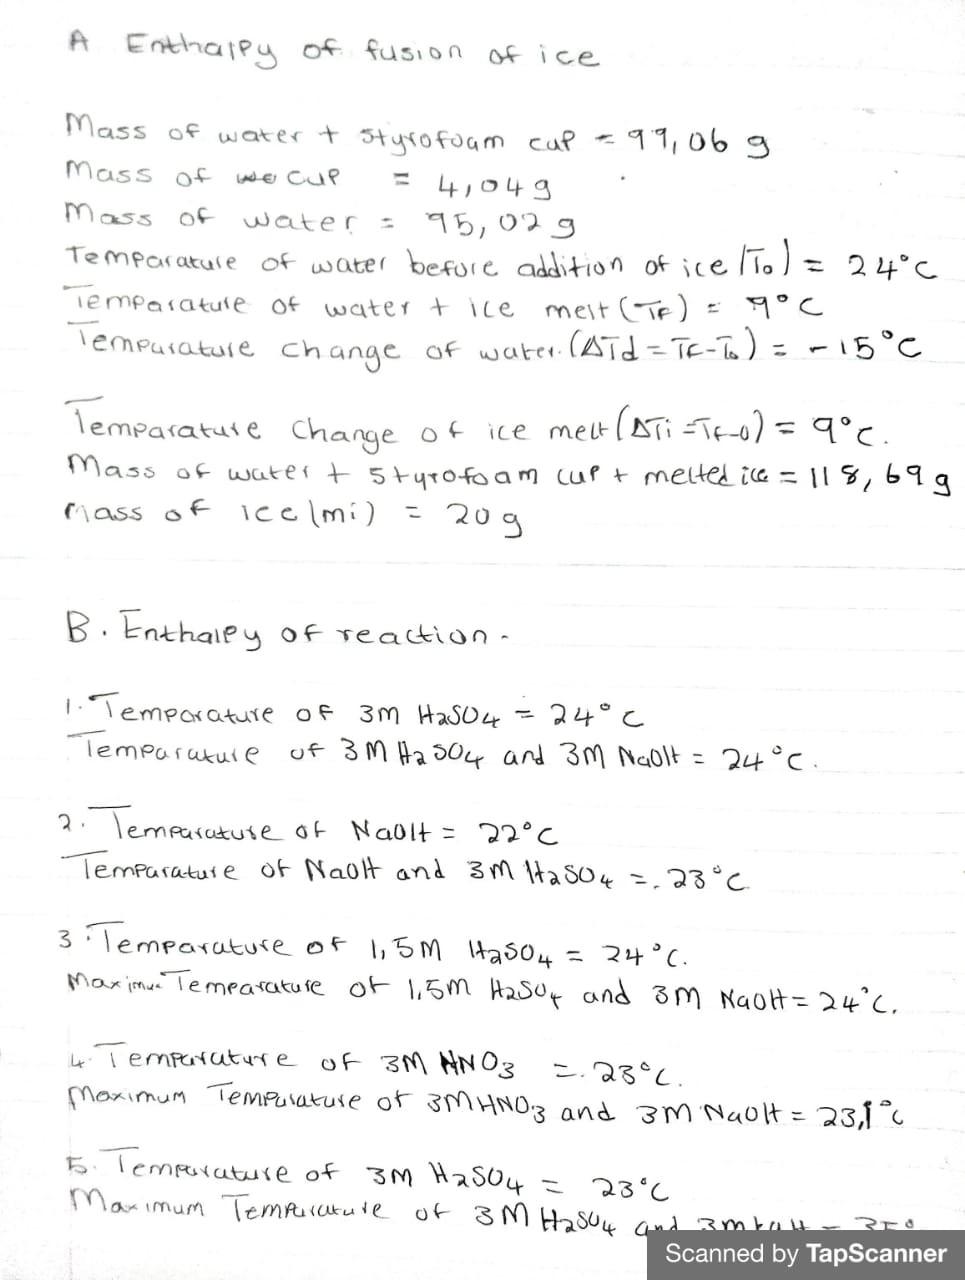 A Enthalpy of fusion of ice
Mass of water + styrofoam cup = 99,06 g
Mass of cup = 4,04 g
Mass of water = 95,02 g
Temparature of water before addition of ice (To) = 24°C
Temparature of water + ice melt (TF) = 9°C
Temparature change of water. (ΔTd = TF-To) = -15°C
Temparature change of ice melt (ΔTi = TF-0) = 9°C.
Mass of water + styrofoam cup + melted ice = 118,69 g
Mass of ice (mi) = 20 g
B. Enthalpy of reaction.
1. Temparature of 3M H2SO4 = 24°C
Temparature of 3M H2SO4 and 3M NaOH = 24°C.
2. Temparature of NaOH = 22°C
Temparature of NaOH and 3M H2SO4 = 23°C
3. Temparature of 1,5M H2SO4 = 24°C.
Maximum Temparature of 1,5M H2SO4 and 3M NaOH = 24°C.
4. Temparature of 3M HNO3 = 23°C.
Maximum Temparature of 3M HNO3 and 3M NaOH = 23,1°C
5. Temparature of 3M H2SO4 = 23°C
Maximum Temparature of 3M H2SO4 and 3M
Scanned by TapScanner